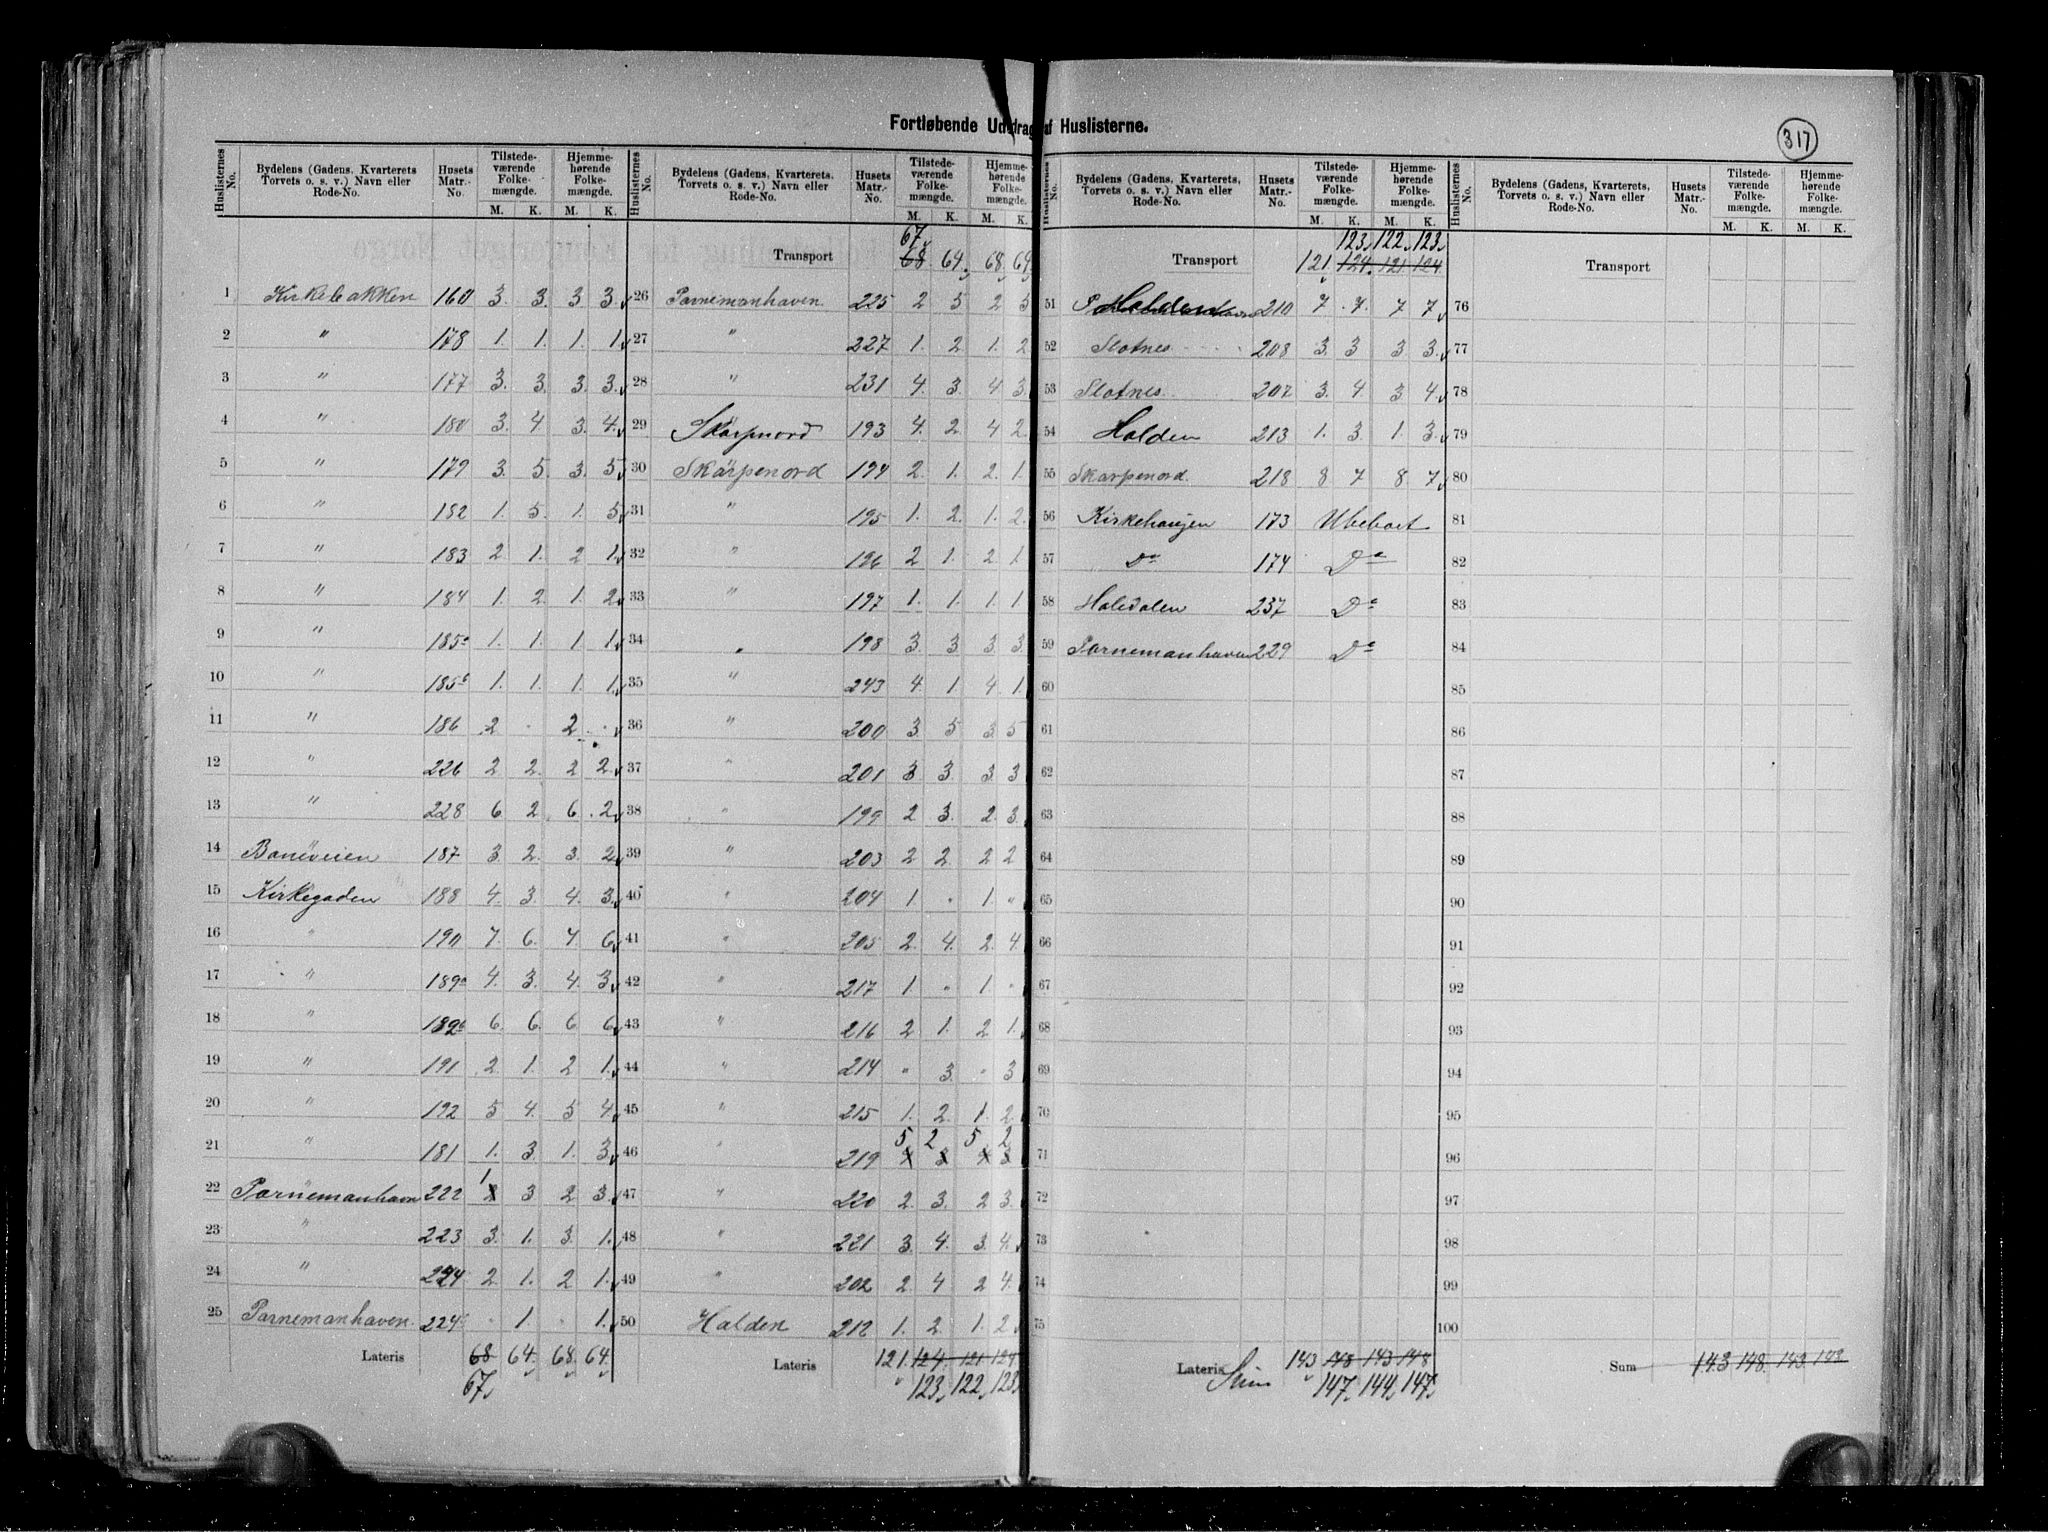 Fortløbende Uddrag af Huslisterne.
317
Huslisternes No. | Bydelens (Gadens, Kvarterets Torvets o. s. v.) Navn eller Rode-No. | Husets Matr.-No. | Tilstedeværende Folkemængde. M. K. | Hjemmehørende Folkemængde. M. K.
1 Kirkebakken 160 3. 3. 3. 3.
2 " 178 1. 1. 1. 1.
3 " 177 3. 3. 3. 3.
4 " 180 3. 4. 3. 4.
5 " 179 3. 5. 3. 5.
6 " 182 1. 5. 1. 5.
7 " 183 2. 1. 2. 1.
8 " 184 1. 2. 1. 2.
9 " 185a 1. 1. 1. 1.
10 " 185b 1. 1. 1. 1.
11 " 186 2 . 2 .
12 " 226 2 2. 2 2.
13 " 228 6 2 6. 2.
14 Baneveien 187 3. 2. 3. 2.
15 Kirkegaden 188 4. 3. 4. 3.
16 " 190 7. 6. 7. 6.
17 " 189a 4. 3. 4. 3.
18 " 189b 6. 6. 6. 6.
19 " 191 2. 1. 2 1.
20 " 192 5 4. 5 4.
21 " 181 1. 3 1. 3.
22 Parnemanhavn 222 1 2 3 2 3.
23 " 223 3. 1. 3. 1.
24 " 224 2. 1. 2 1.
25 Parnemanhaven. 224b . 1 . 1.
Lateris 68 64. 68. 64.
67
Huslisternes No. | Bydelens (Gadens, Kvarterets, Torvets o. s. v.) Navn eller Rode-No. | Husets Matr.-No. | Tilstedeværende Folkemængde. M. K. | Hjemmehørende Folkemængde. M. K.
67
Transport 68. 64. 68. 64
26 Parnemanhaven. 225 2 5 2 5
27 " 227 1. 2 1. 2
28 " 231 4. 3. 4 3.
29 Skarpnord 193 4. 2. 4 2.
30 Skarpenord 194 2. 1. 2. 1.
31 " 195 1. 2. 1. 2.
32 " 196 2 1. 2 1
33 " 197 1. 1. 1. 1
34 " 198 3. 3. 3. 3.
35 " 243 4. 1 4. 1.
36 " 200 3. 5 3. 5
37 " 201 3 3. 3. 3
38 " 199 2 3. 2. 3.
39 " 203 2 2. 2 2
40 " 204 1. " 1. "
41 " 205 2. 4. 2. 4.
42 " 217 1. " 1. "
43 " 216 2. 1. 2 1.
44 " 214 " 3. " 3
45 " 215 1. 2. 1. 2.
5 2 5 2
46 " 219 4 3 4 3
47 " 220 2. 3. 2 3.
48 " 221 3. 4. 3. 4.
49 " 202 2. 4 2 4.
50 Halden 212 1. 2. 1. 2.
Lateris 121. 124. 121 124
123. 122. 123.
Huslisternes No. | Bydelens (Gadens, Kvarterets, Torvets o. s. v.) Navn eller Rode-No. | Husets Matr.-No. | Tilstedeværende Folkemængde. M. K. | Hjemmehørende Folkemængde. M. K.
123. 122. 123.
Transport 121. 124. 121 124
51 210 7 7. 7 7
52 Slotnes 208 3. 3 3 3.
53 Slotnes. 207 3. 4 3. 4.
54 Halden 213 1. 3. 1. 3.
55 Skarpenord. 218 8 7 8. 7
56 Kirkehaugen 173 Ubeboet
57 Do 174 Do
58 237 Do
59 Parnemanhaven 229 Do
60
61
62
63
64
65
66
67
68
69
70
71
72
73
74
75
Lateris 143 148 143 148
Sum 147. 144. 147.
Huslisternes No. | Bydelens (Gadens, Kvarterets, Torvets o. s. v.) Navn eller Rode-No. | Husets Matr.-No. | Tilstedeværende Folkemængde. M. K. | Hjemmehørende Folkemængde. M. K.
Transport
76
77
78
79
80
81
82
83
84
85
86
87
88
89
90
91
92
93
94
95
96
97
98
99
100
Sum 143 148. 143. 143